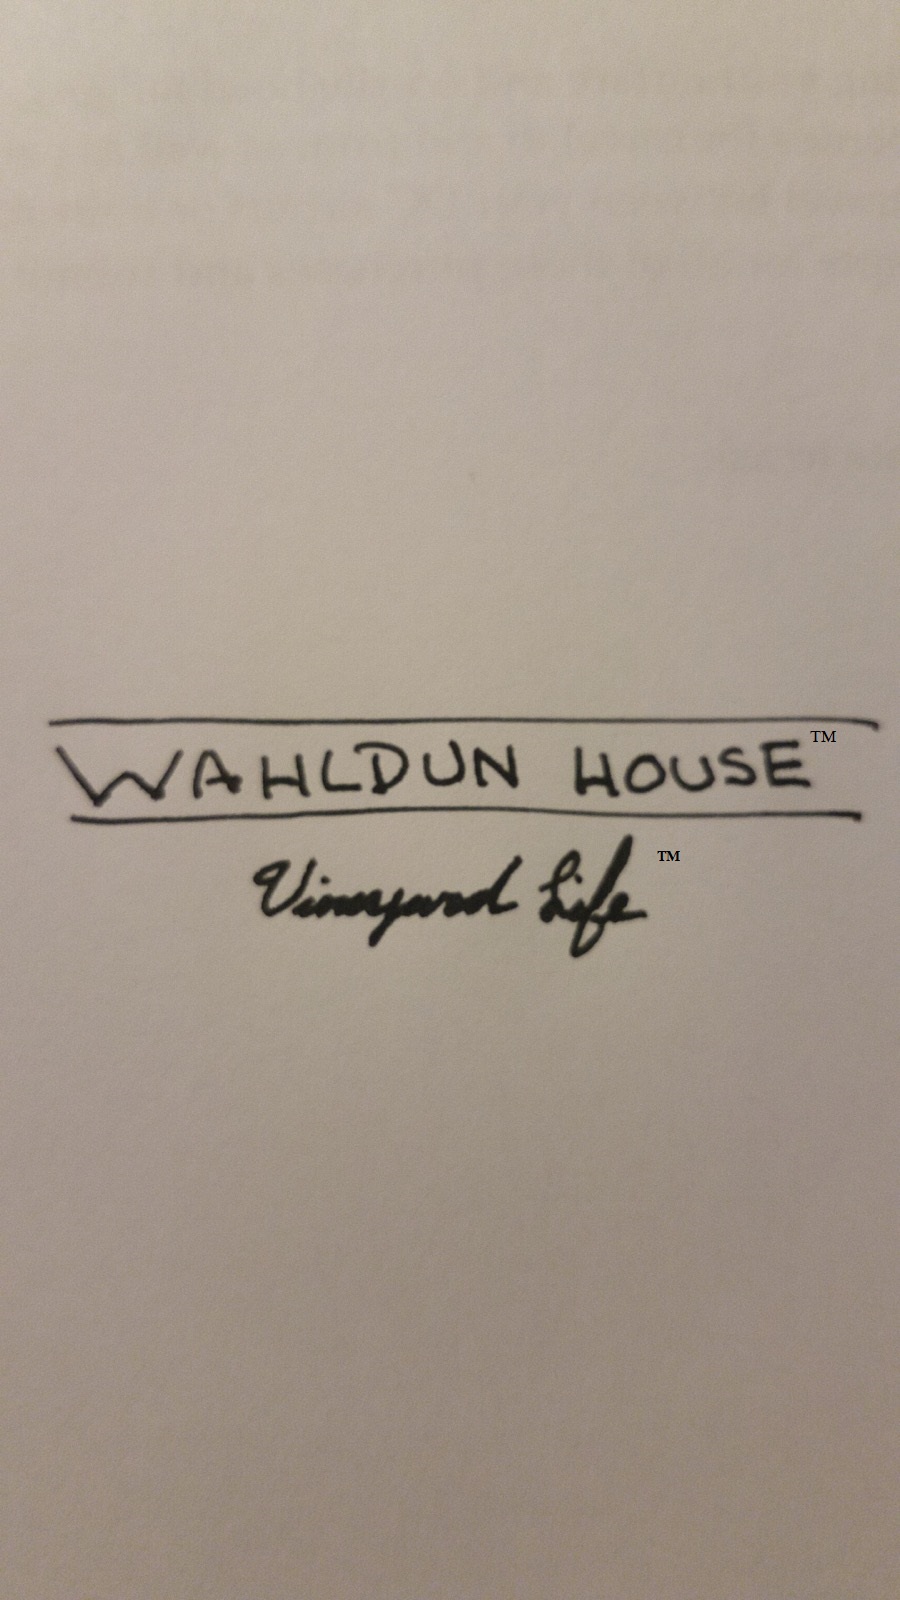 WAHLDUN HOUSE™
Vineyard Life™